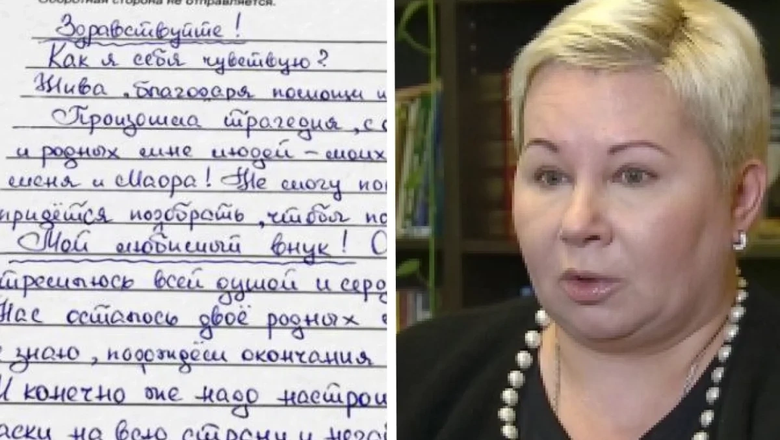 Оборотная сторона не отправляется.
Здравствуйте!
Как я себя чувствую?
Жива, благодаря помощи и
Произошла трагедия, с
и родных мне людей – моих
меня и Маора! Не могу по
придётся подобрать, чтобы по
Мой любимый внук! С
тремлюсь всей душой и серд
Нас осталось двоё родных
знаю, подождём окончания
И конечно же надо настрои
на всю страну и